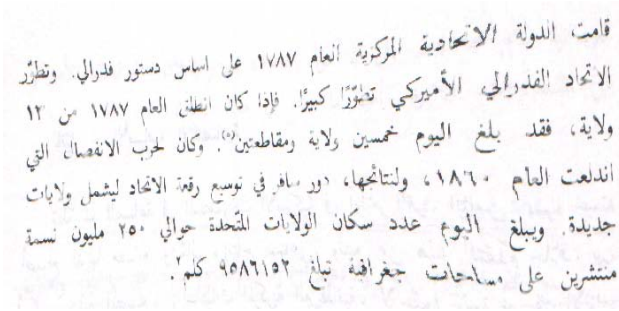 قامت الدولة الاتحادية المركزية العام ١٧٨٧ على اساس دستور فدرالي. وتطوّر
الاتحاد الفدرالي الأميركي تطوّرًا كبيرًا. فإذا كان انطلق العام ١٧٨٧ من ١٣
ولاية، فقد بلغ اليوم خمسين ولاية ومقاطعتين(٥). وكان لحرب الانفصال التي
اندلعت العام ١٨٦٠، ولنتائجها، دور سافر في توسيع رقعة الاتحاد ليشمل ولايات
جديدة. ويبلغ اليوم عدد سكان الولايات المتحدة حوالي ٢٥٠ مليون نسمة
منتشرين على مساحات جغرافية تبلغ ٩٥٨٦١٥٢ كلم٢.